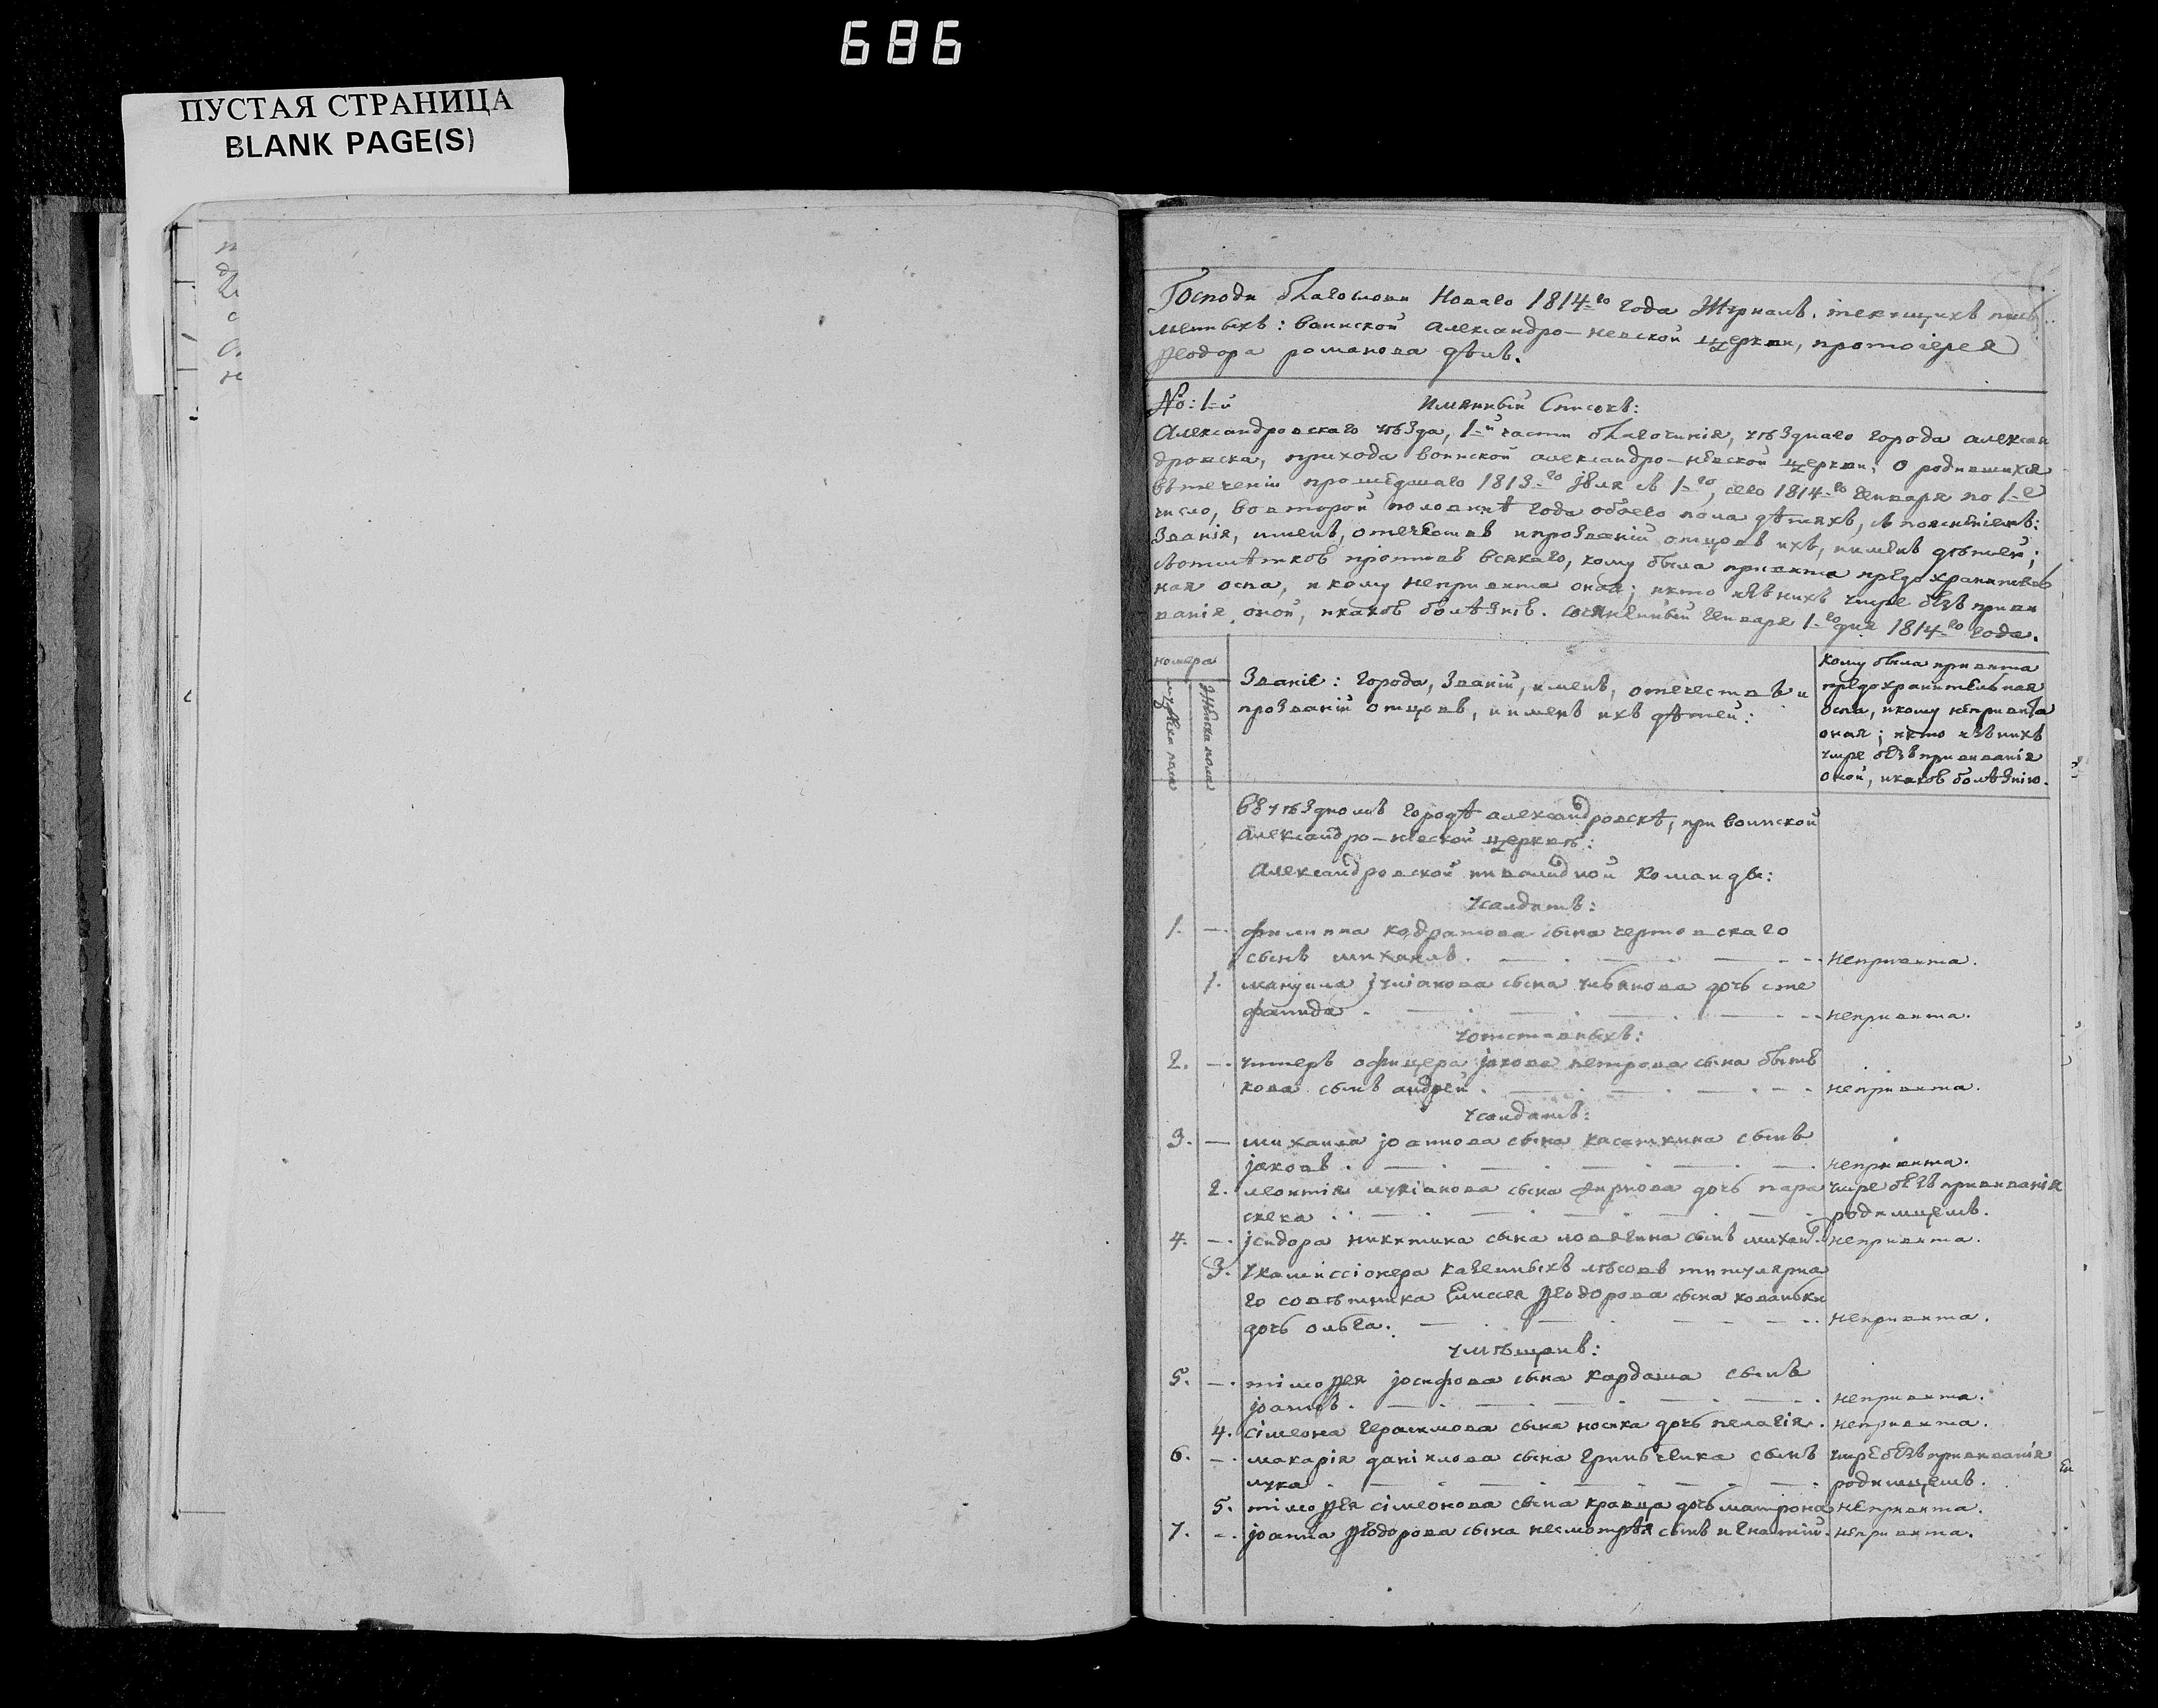 686
ПУСТАЯ СТРАНИЦА
BLANK PAGE(S)
Господи благослови Новаго 1814-го года Жɣрналъ текɣщихъ
менныхъ: воинской александро-невской церкви, протоіерея
Ѳеодора романова дѣлъ.
No: 1-й Имянный Списокъ:
Александровскаго ɣѣзда, 1-й части благочинія, ɣѣзднаго города алексан
дровска, прихода воинской александро-невской церкви, о родившихся
втеченіи прошедшаго 1813-го Іюля съ 1-го, сего 1814-го генваря по 1-е
число, вовторой половинѣ года обоего пола дѣтяхъ, съ пояснѣніемъ:
Званія, именъ, отечествъ ипрозваній отцовъ ихъ, иименъ дѣтей;
сѣотмѣткою противъ всякаго, комɣ была привита предохранитель
ная оспа, и комɣ непривита оная; икто изъ нихъ ɣмре безъ приви
ванія оной, икакою болѣзнію. Сочиненный генваря 1-го дня 1814-го года.
номера
мɣжска пола
Женска пола
Званіе: города, Званій, именъ, отечествъ и
прозваній отцовъ, иименъ ихъ дѣтей:
Комɣ была привита
предохранительная
оспа, икомɣ непривита
оная; икто изъ нихъ
ɣмре безъ прививанія
оной, икакою болѣзнію.
Въ ɣѣздномъ городѣ александровскѣ, при воинской
Александро-невской церквѣ:
Александровской инвалидной Команды:
ɣсалдатъ:
1. —. филиппа кодратова сына чертовскаго
сынъ михаилъ. непривита.
1. манɣила сына дочь сте
фанида. непривита.
ɣотставныхъ:
2. —. ɣнтеръ офицера јакова петрова сына бытъ
кова сынъ андрей. непривита.
ɣсалдатъ:
3. — михаила јоаннова сына касаткина сынъ
јаковъ. непривита.
2. леонтія лɣкіанова сына дочь пара ɣмре безъ прививанія
скева. родимцемъ.
4. —. јсидора никитина сына ловягина сынъ михаи. непривита.
3. ɣкоммиссіонера казенныхъ лѣсовъ титɣлярна
го совѣтника Елисея Ѳеодорова сына кованьки
дочь ольга. непривита.
ɣмѣщанъ:
5. —. тімоѳея јосифова сына кардаша сынъ
јоаннъ. непривита.
4. сімеона герасимова сына носика дочь пелагія. непривита.
6. —. макарія даніилова сына гринченка сынъ ɣмре безъ прививанія
лɣка. родимцемъ.
5. тімоѳея сімеонова сына кравца дочь матрона непривита.
7. —. јоанна Ѳеодорова сына несмотрѣя сынъ игнатій. непривита.